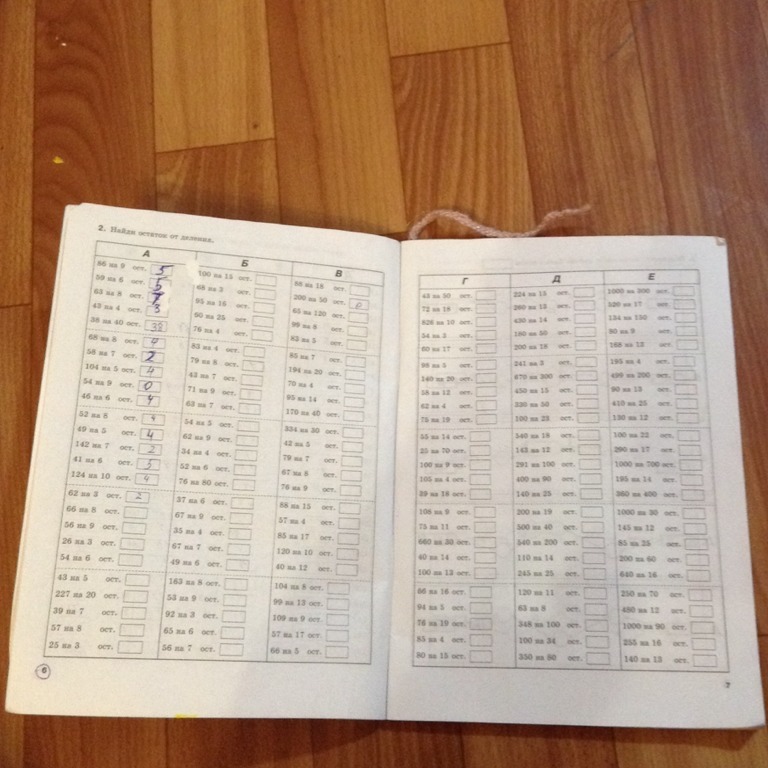 2. Найди остаток от деления.
А
86 на 9 ост. 5
59 на 6 ост. 5
63 на 8 ост. 7
43 на 4 ост. 3
38 на 40 ост. 38
68 на 8 ост. 4
58 на 7 ост. 2
104 на 5 ост. 4
54 на 9 ост. 0
46 на 6 ост. 4
52 на 8 ост. 4
49 на 5 ост. 4
142 на 7 ост. 2
41 на 6 ост. 5
124 на 10 ост. 4
62 на 3 ост. 2
66 на 8 ост.
56 на 9 ост.
26 на 3 ост.
54 на 6 ост.
43 на 5 ост.
227 на 20 ост.
39 на 7 ост.
57 на 8 ост.
25 на 3 ост.
Б
100 на 15 ост.
68 на 3 ост.
95 на 16 ост.
60 на 25 ост.
76 на 4 ост.
83 на 4 ост.
79 на 8 ост.
43 на 7 ост.
71 на 9 ост.
63 на 7 ост.
54 на 5 ост.
62 на 9 ост.
34 на 4 ост.
52 на 6 ост.
76 на 80 ост.
37 на 6 ост.
67 на 9 ост.
35 на 4 ост.
67 на 7 ост.
49 на 6 ост.
163 на 8 ост.
53 на 9 ост.
92 на 3 ост.
65 на 6 ост.
56 на 7 ост.
В
88 на 18 ост.
200 на 50 ост. 0
65 на 120 ост.
99 на 8 ост.
83 на 5 ост.
85 на 7 ост.
194 на 20 ост.
70 на 4 ост.
95 на 14 ост.
170 на 40 ост.
334 на 30 ост.
42 на 5 ост.
79 на 7 ост.
67 на 8 ост.
76 на 9 ост.
88 на 15 ост.
57 на 4 ост.
85 на 17 ост.
120 на 10 ост.
40 на 12 ост.
104 на 8 ост.
99 на 13 ост.
109 на 9 ост.
57 на 17 ост.
66 на 5 ост.
6
Г
43 на 50 ост.
72 на 18 ост.
828 на 10 ост.
54 на 3 ост.
60 на 17 ост.
98 на 5 ост.
140 на 20 ост.
58 на 12 ост.
62 на 4 ост.
75 на 19 ост.
55 на 14 ост.
25 на 70 ост.
100 на 9 ост.
105 на 4 ост.
39 на 16 ост.
108 на 9 ост.
75 на 11 ост.
660 на 30 ост.
40 на 14 ост.
100 на 13 ост.
66 на 16 ост.
94 на 5 ост.
76 на 19 ост.
85 на 4 ост.
80 на 15 ост.
Д
224 на 15 ост.
260 на 13 ост.
430 на 14 ост.
180 на 50 ост.
200 на 18 ост.
241 на 3 ост.
670 на 300 ост.
450 на 15 ост.
330 на 50 ост.
100 на 23 ост.
540 на 18 ост.
143 на 12 ост.
291 на 100 ост.
400 на 90 ост.
140 на 25 ост.
200 на 19 ост.
500 на 40 ост.
540 на 200 ост.
110 на 14 ост.
245 на 25 ост.
120 на 11 ост.
63 на 8 ост.
348 на 100 ост.
100 на 34 ост.
350 на 80 ост.
Е
1000 на 300 ост.
520 на 17 ост.
134 на 150 ост.
80 на 9 ост.
168 на 13 ост.
195 на 4 ост.
499 на 200 ост.
90 на 13 ост.
610 на 25 ост.
130 на 12 ост.
100 на 22 ост.
290 на 17 ост.
1000 на 700 ост.
195 на 14 ост.
360 на 400 ост.
1000 на 30 ост.
145 на 12 ост.
85 на 25 ост.
200 на 60 ост.
640 на 16 ост.
250 на 70 ост.
480 на 12 ост.
1000 на 90 ост.
255 на 16 ост.
140 на 13 ост.
7